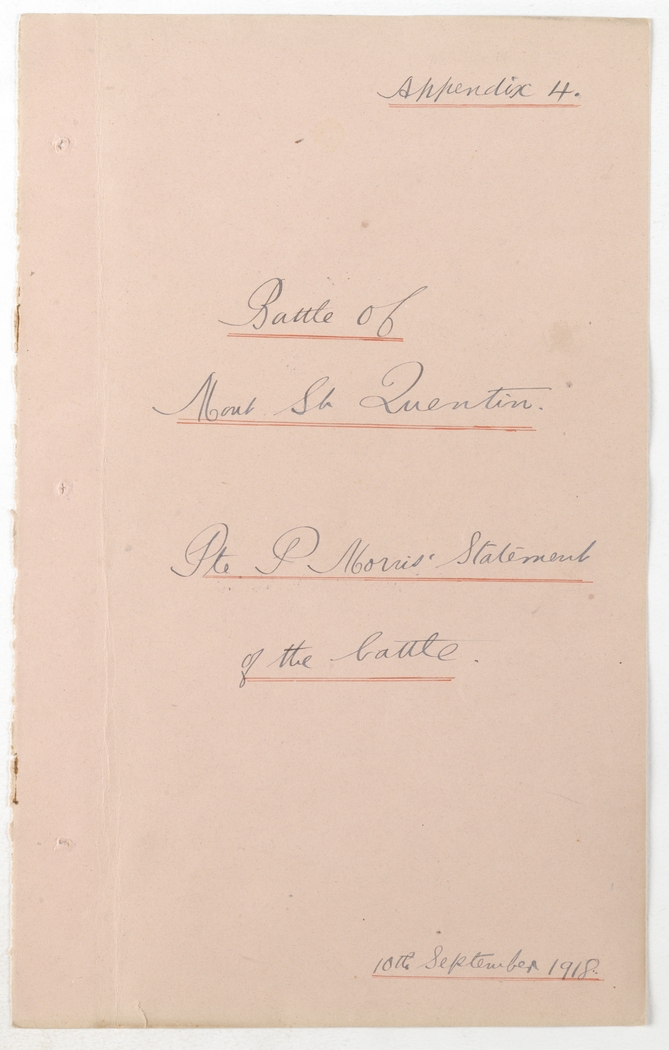 Appendix 4.
Battle of
Mont St Quentin.
Pte P Morris' Statement
of the battle.
10th September 1918.